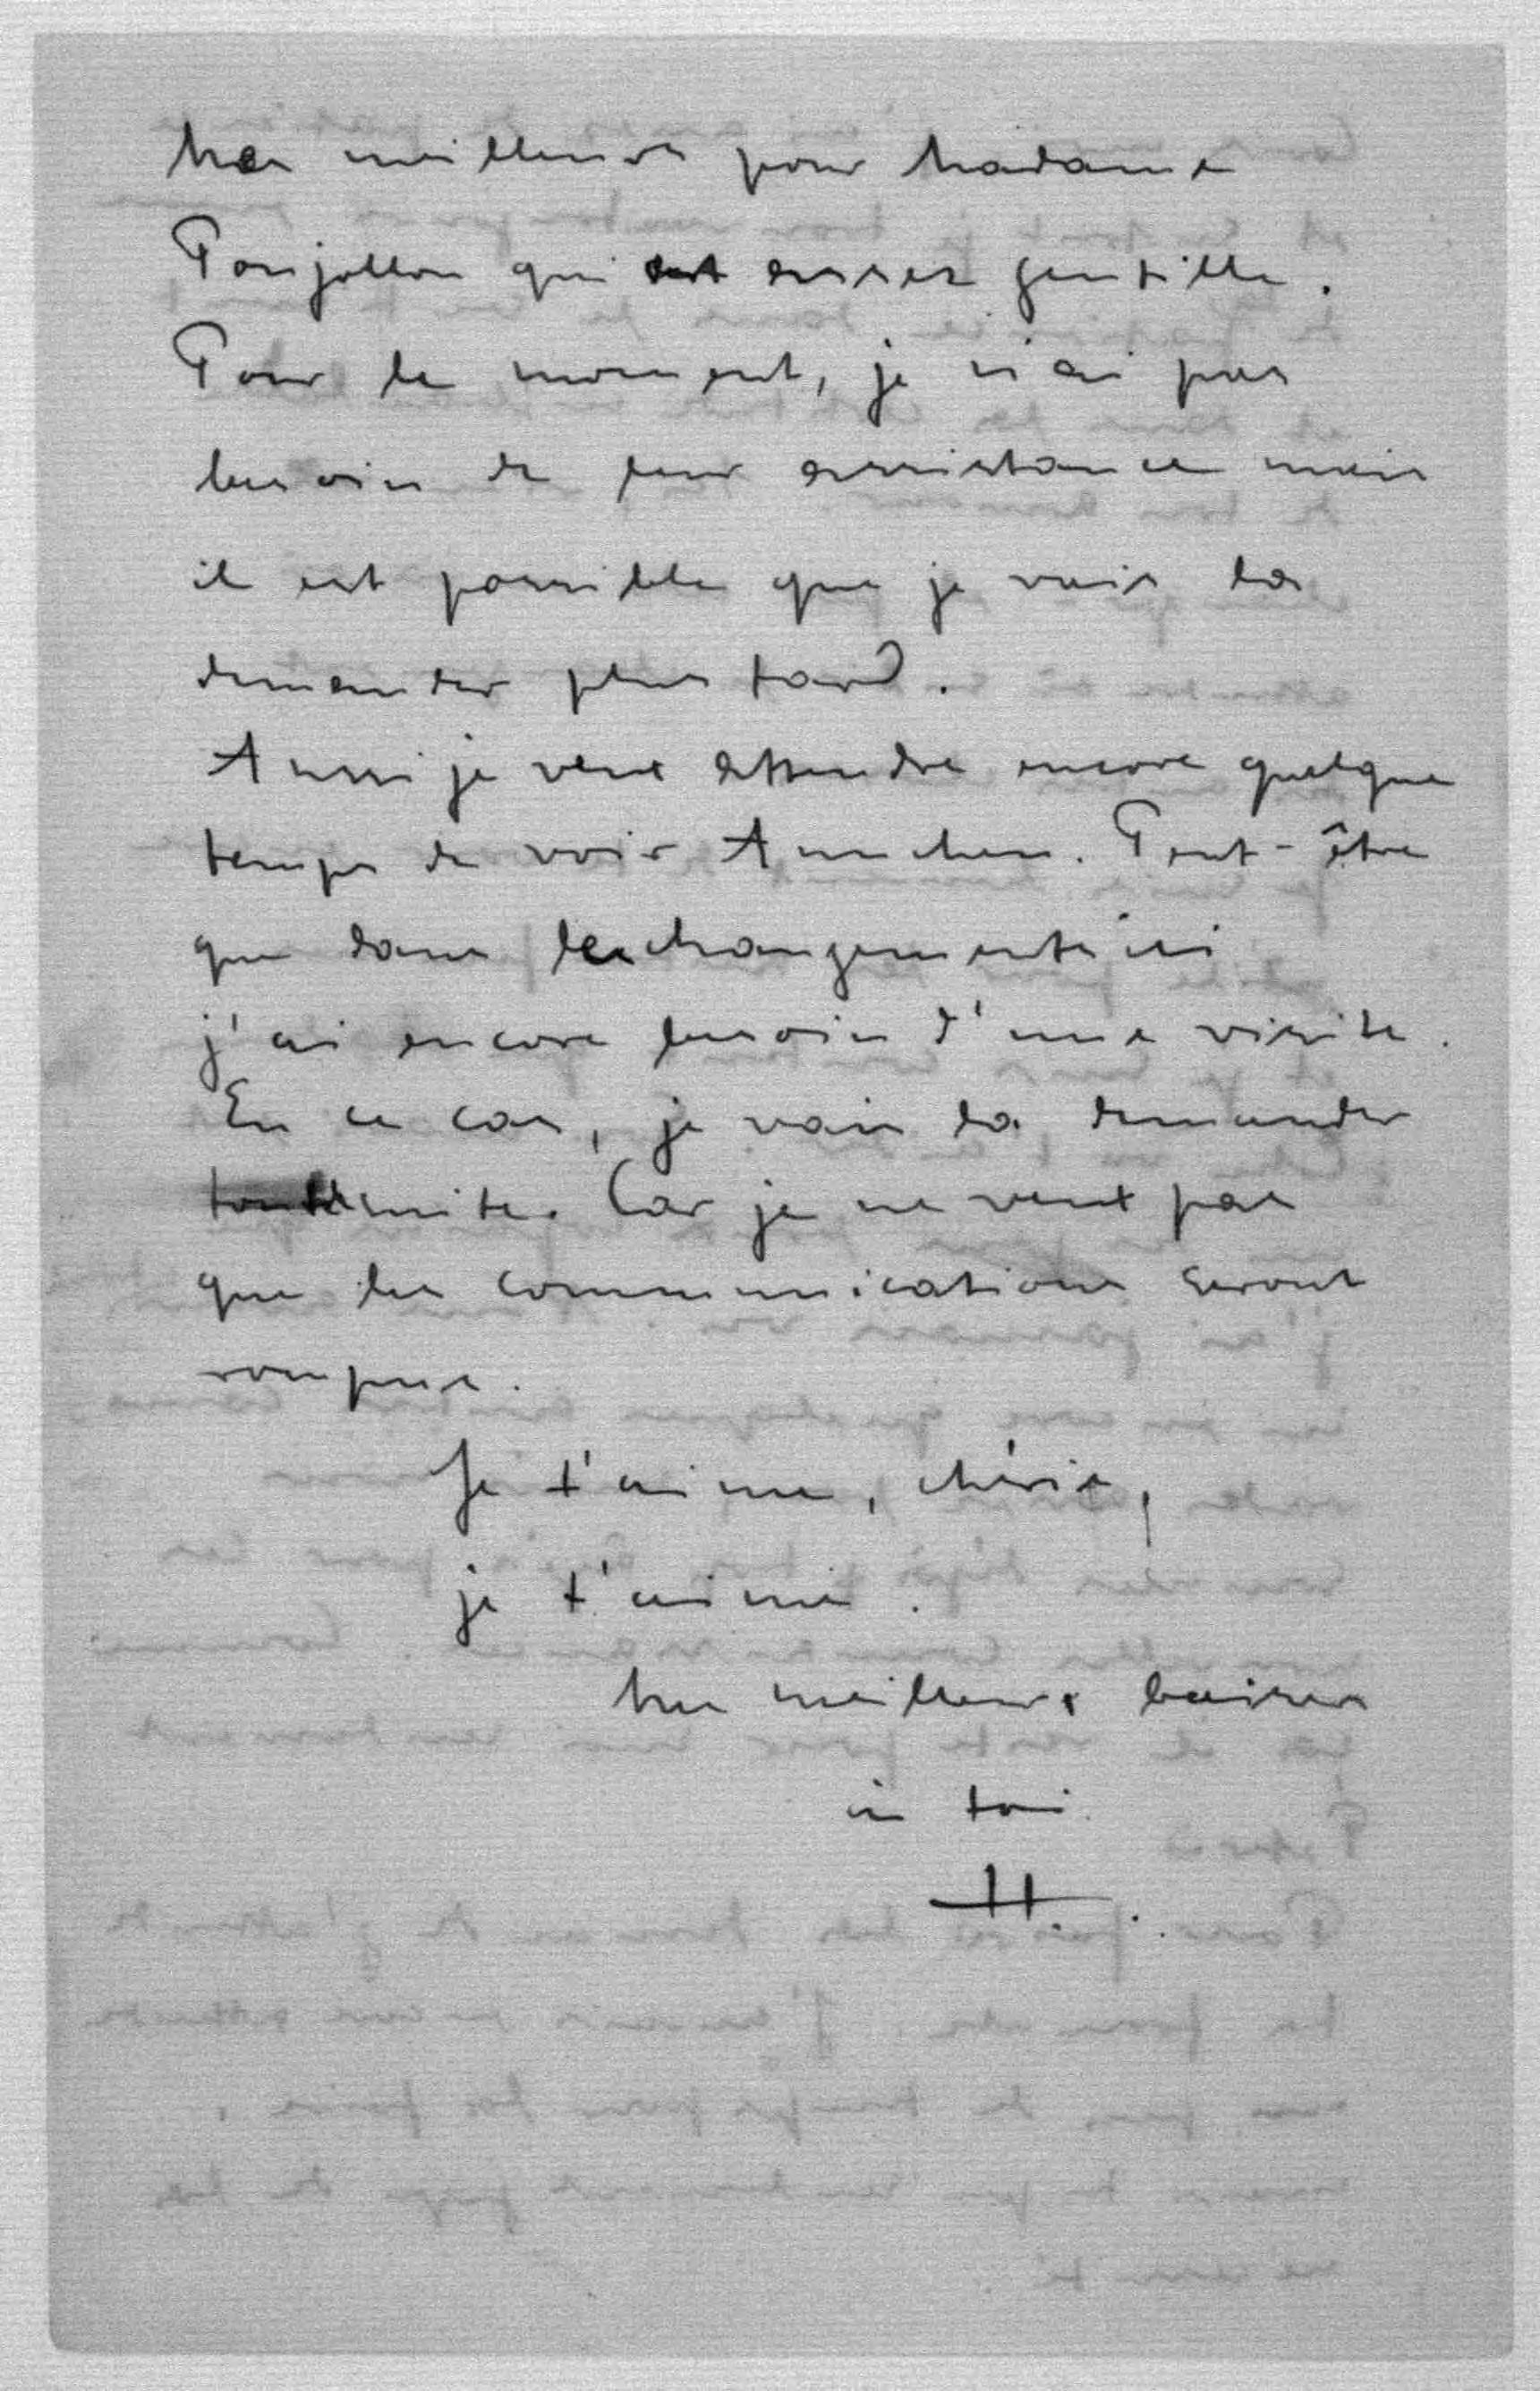 Mes meilleurs pour Madame
qui est assez gentille.
Pour le moment, je n'ai pas
besoin de leur assistance mais
il est possible que je vais la
demander plus tard.
Aussi je veux attendre encore quelque
temps de voir Annchen. Peut-être
que dans les changements ici
j'ai encore besoin d'une visite.
En ce cas, je vais la demander
tout de suite. Car je ne veux pas
que les communications seront
rompues.
Je t'aime, chérie,
je t'aime.
Mes meilleurs baisers
à toi
H.